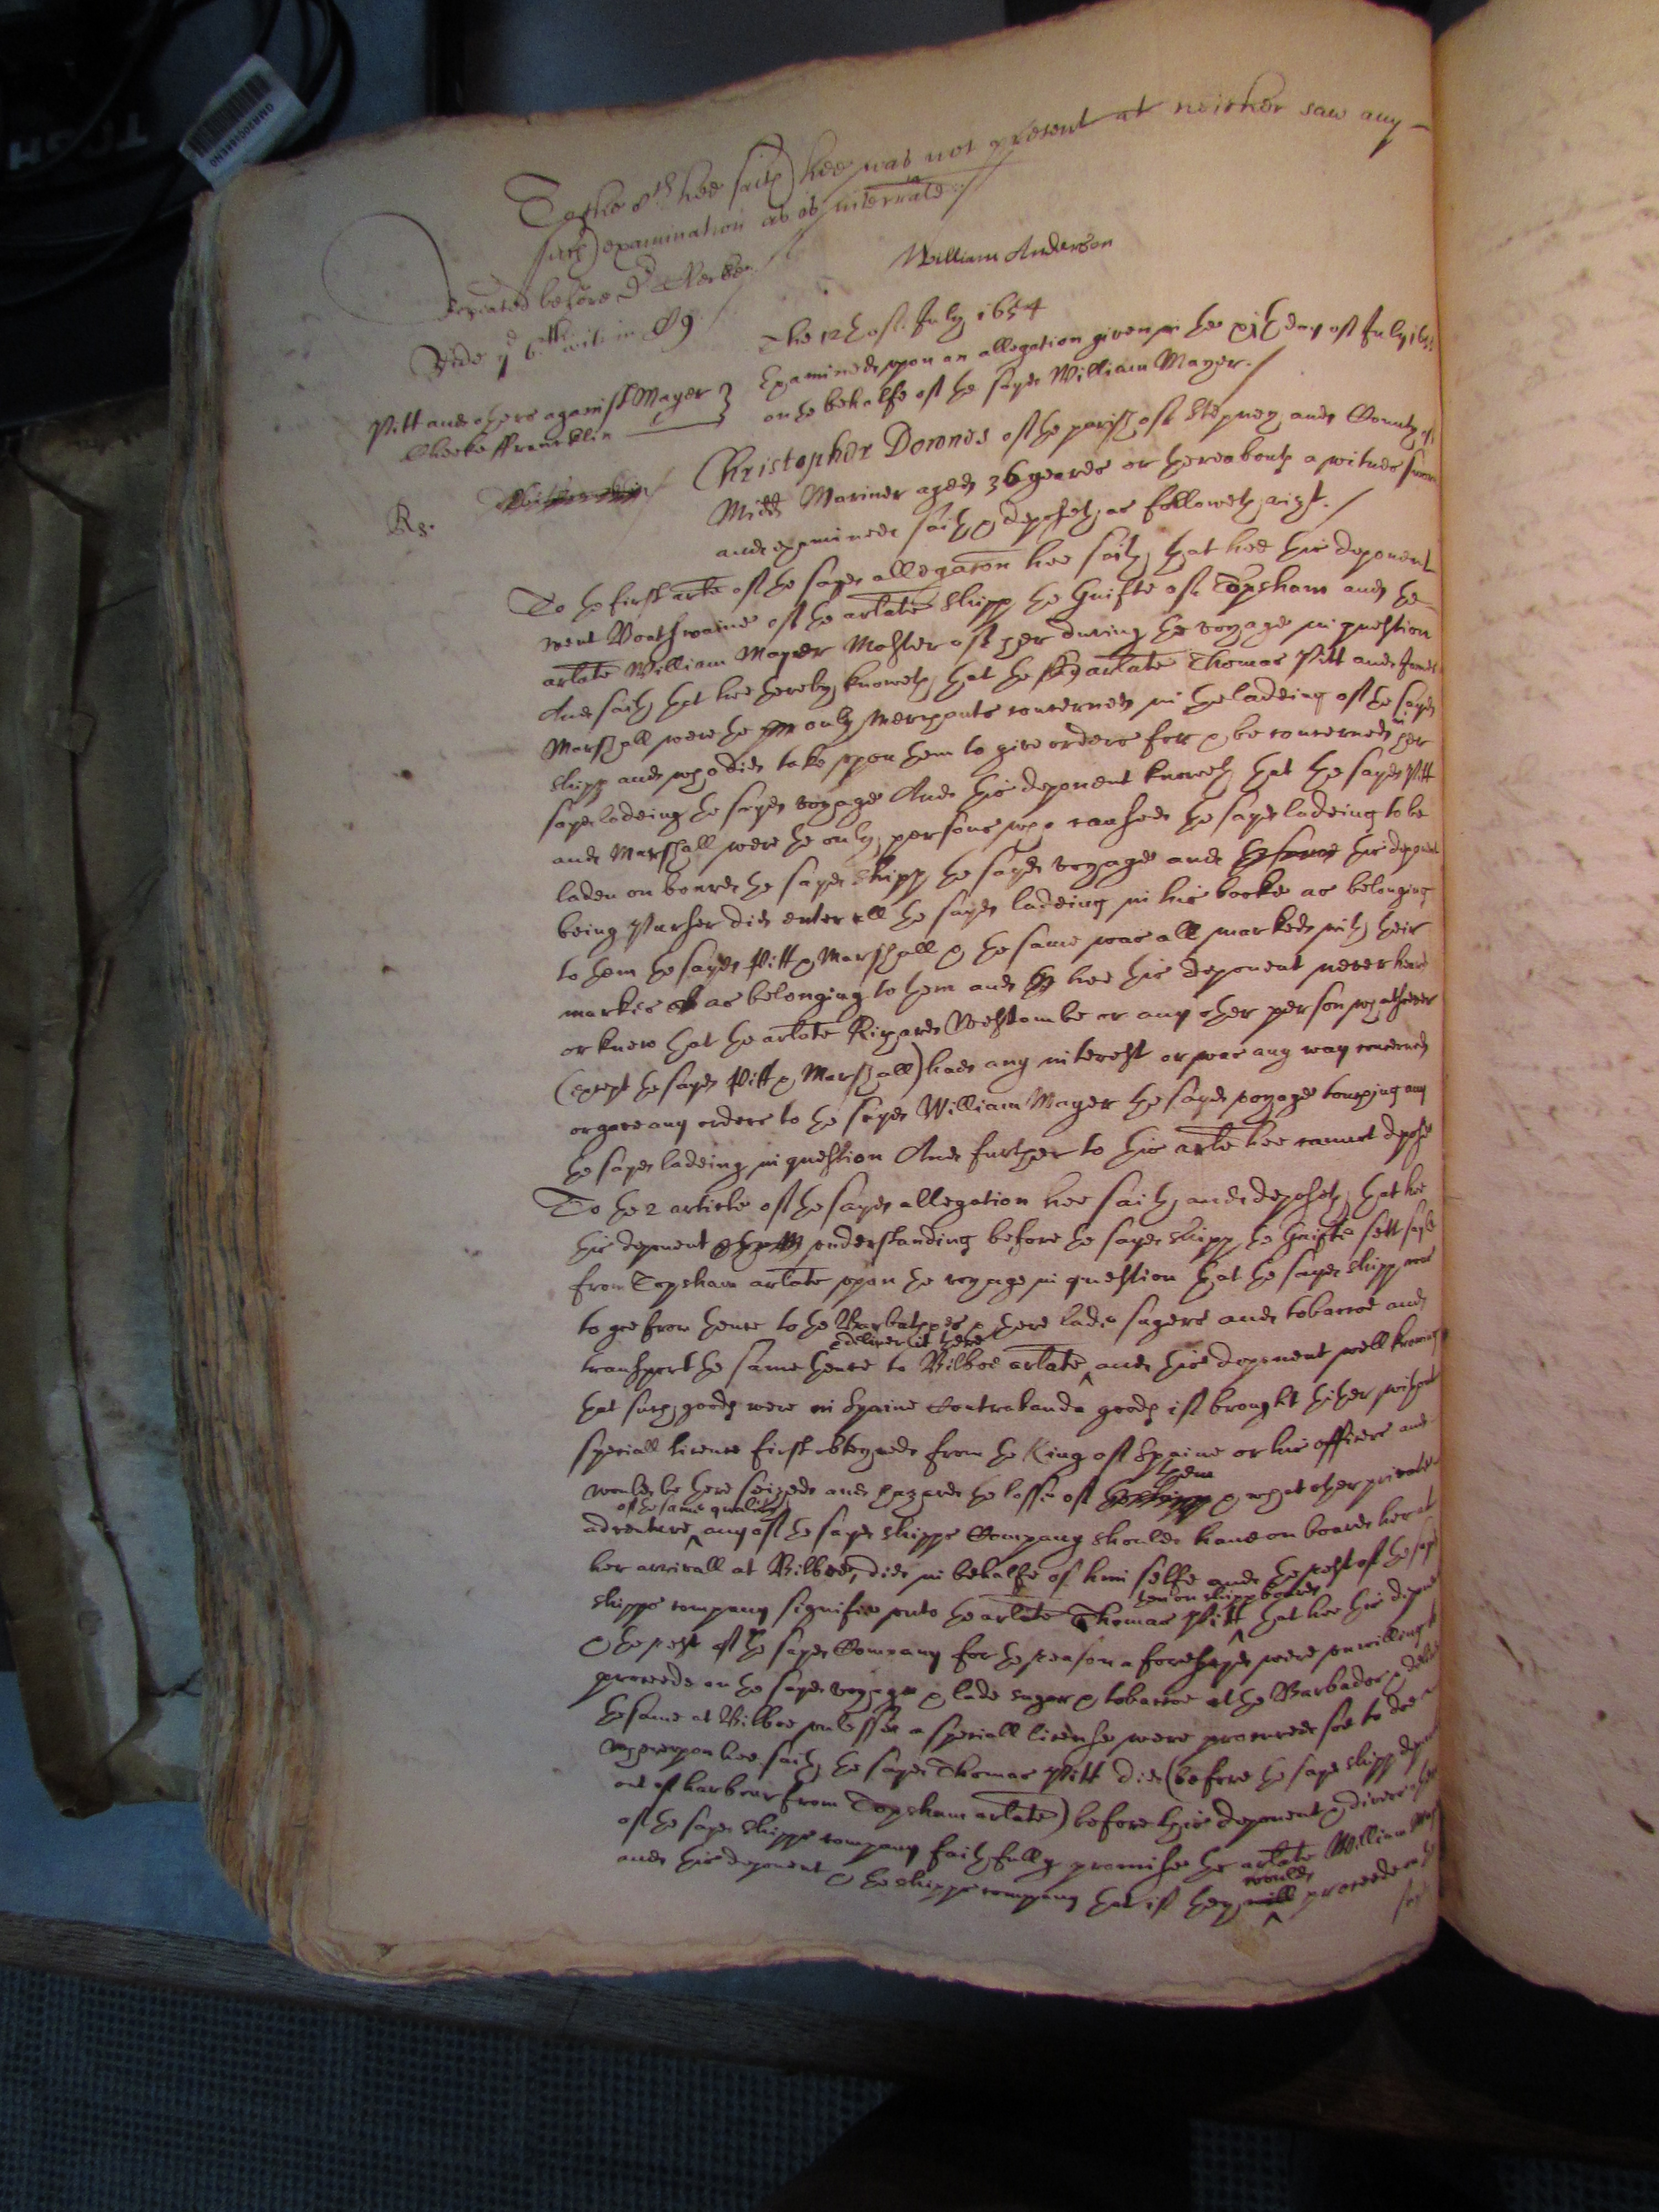 To the 8th hee saith hee was not present at neither saw any
such examination as is interrate:/
Repeated before Dr Clerke./
William Anderson
The 12th of July 1654
Pitt and others against Mayer
Cheeke ffrancklin
Examined upon an allegation given in the day of July
on the behalfe of the sayd William Mayer./
Rs.
Christopher Downes of the parish of Stepney and County of
Midd Mariner aged 36 yeares or thereabouts a witnes sworne
and examined saith & deposeth as followeth, vizt./
To the first arle of the sayd allegacon hee saith, that hee this deponent
went Boatswaine of the arlate shipp the Guifte of Topsham and the
arlate William Mayer Master of her during the voyage in question
And saith that hee thereby knoweth, that the arlate Thomas Pitt and James
Marshall were the only Merchants concerned in the ladeing of the sayd
shipp and who did take upon them to give orders for & be concerned in her
sayd ladeing the sayd voyage And this deponent knoweth that the sayd Pitt
and Marshall were the only persons who caused the sayd ladeing to be
laden on board the sayd shipp the sayd voyage and this deponent
being Purser did enter all the sayd ladeing in his booke as belonging
to them the sayd Pitt & Marshall & the same was all marked with their
markes as belonging to them and hee this deponent never heard
or knew that the arlate Richard Westcombe or any other person whatsoever
(except the sayd Pitt & Marshall) had any interest or was any way concerned
or gave any orders to the sayd William Mayer the sayd voyage touching any
the sayd ladeing in question And further to this arle hee cannot depose
To the 2 article of the sayd allegation hee saith and deposeth, that hee
this deponent understanding before the sayd shipp the Guifte sett sayle
from Topsham arlate upon the voyage in question that the sayd shipp was
to goe from thence to the Barbathoes & there lade sugers and tobaccoe and
transport the same thence to Bilboe arlate & deliver it there and this deponent well knowing
that such goods were in Spaine Contrabanda goods if brought thither without
speciall licence first obteyned from the King of Spaine or his officers and
would be there seized and hazard the losse of them & what other private
adventure of the same quality any of the sayd shipps Company should have on board her at
her arrivall at Bilboe, did in behalfe of him selfe and the rest of the sayd
shipps company signifie unto the arlate Thomas Pitt then on shipp board that hee this deponent
& the rest of the sayd Company for the reason aforesayd were unwilling to
proceede on the sayd voyage & lade sugar & tobaccoe at the Barbados & deliver
the same at Bilboe unlesse a speciall license were procured soe to doe
whereupon hee saith, the sayd Thomas Pitt did (before the sayd shipp departed
out of harbour from Topsham arlate) before this deponent & divers others
of the sayd shipps company faithfully promise the arlate William Mayer
and this deponent & the shipps company that if they would proceede